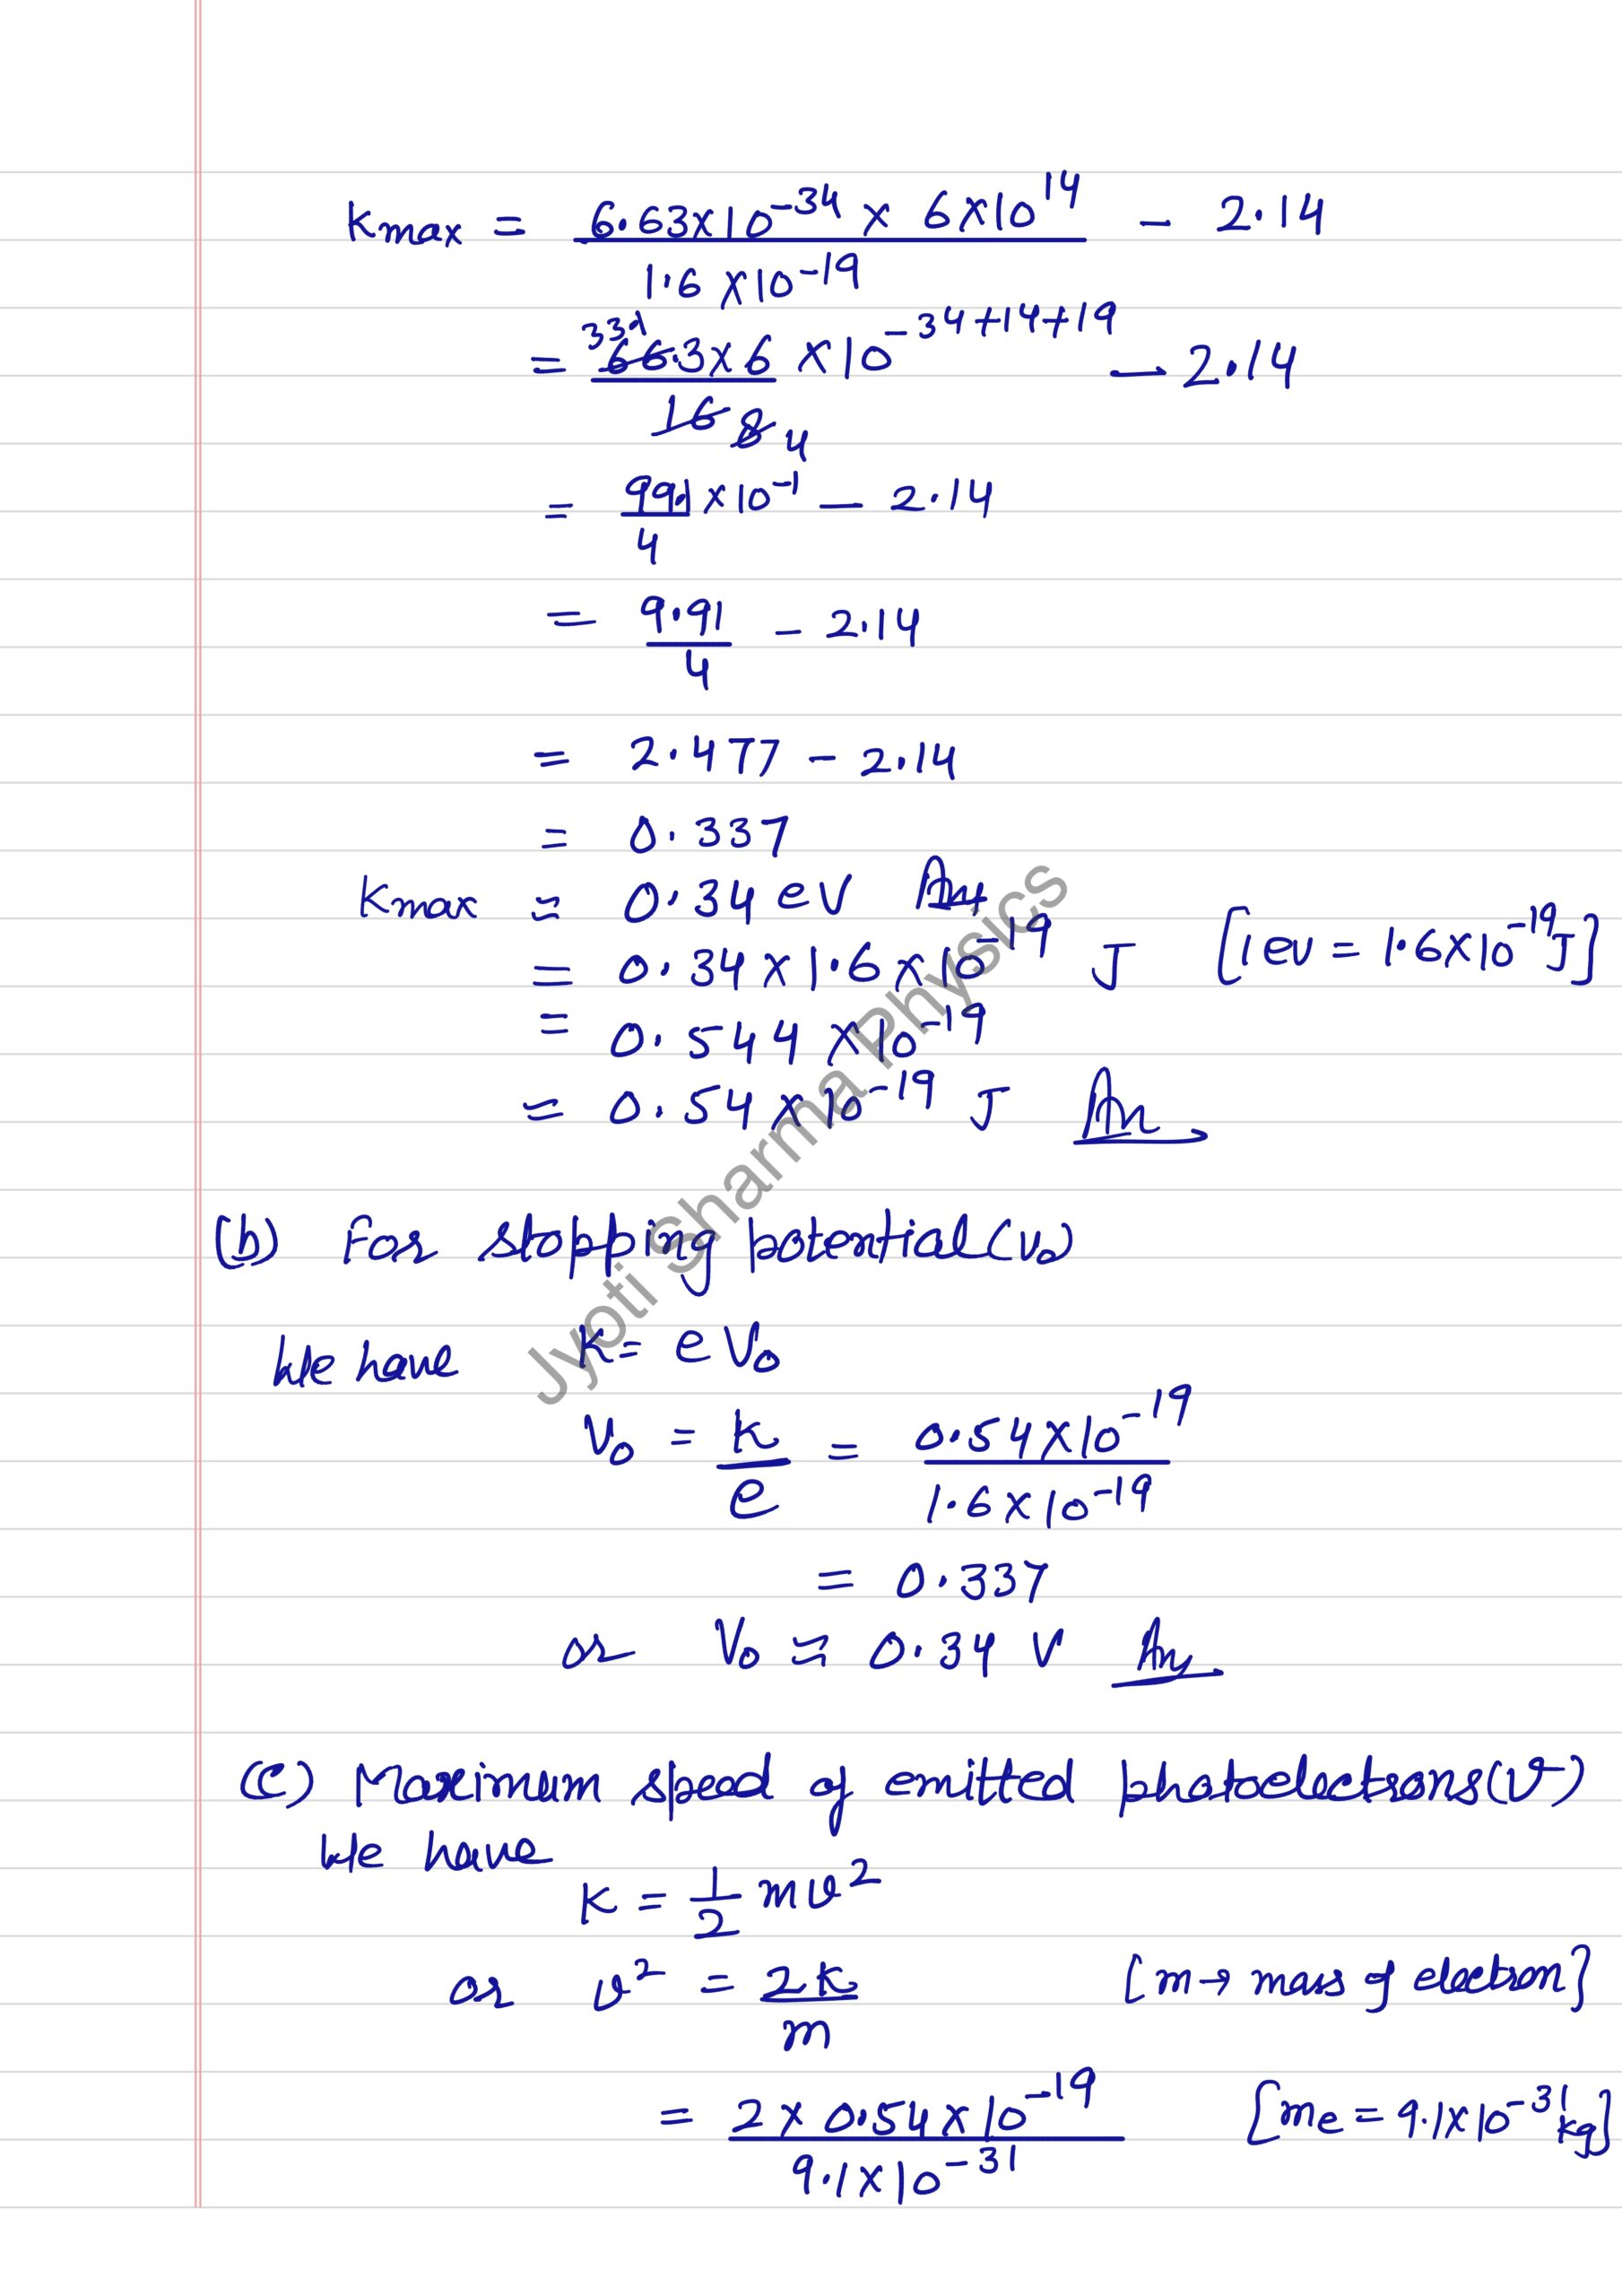 Kmax = 6.63×10⁻³⁴ × 6×10¹⁴ / 1.6×10⁻¹⁹ − 2.14
= 66.3×6 / 16 ×10⁻³⁴⁺¹⁴⁺¹⁹ − 2.14
331
8 4
= 991/4 ×10⁻¹ − 2.14
= 9.91/4 − 2.14
= 2.477 − 2.14
= 0.337
Kmax ≈ 0.34 eV Ans
= 0.34×1.6×10⁻¹⁹ J [1 ev = 1.6×10⁻¹⁹ J]
= 0.544 ×10⁻¹⁹
= 0.54×10⁻¹⁹ J Ans
(b) For stopping potential (V₀)
We have K = eV₀
V₀ = K/e = 0.54×10⁻¹⁹ / 1.6×10⁻¹⁹
= 0.337
or V₀ ≈ 0.34 V Ans
(c) Maximum speed of emitted photoelectrons (v)
We have
K = 1/2 mv²
or v² = 2K/m [m→ mass of electron]
= 2×0.54×10⁻¹⁹ / 9.1×10⁻³¹ [me = 9.1×10⁻³¹ kg]
Jyoti Sharma Physics